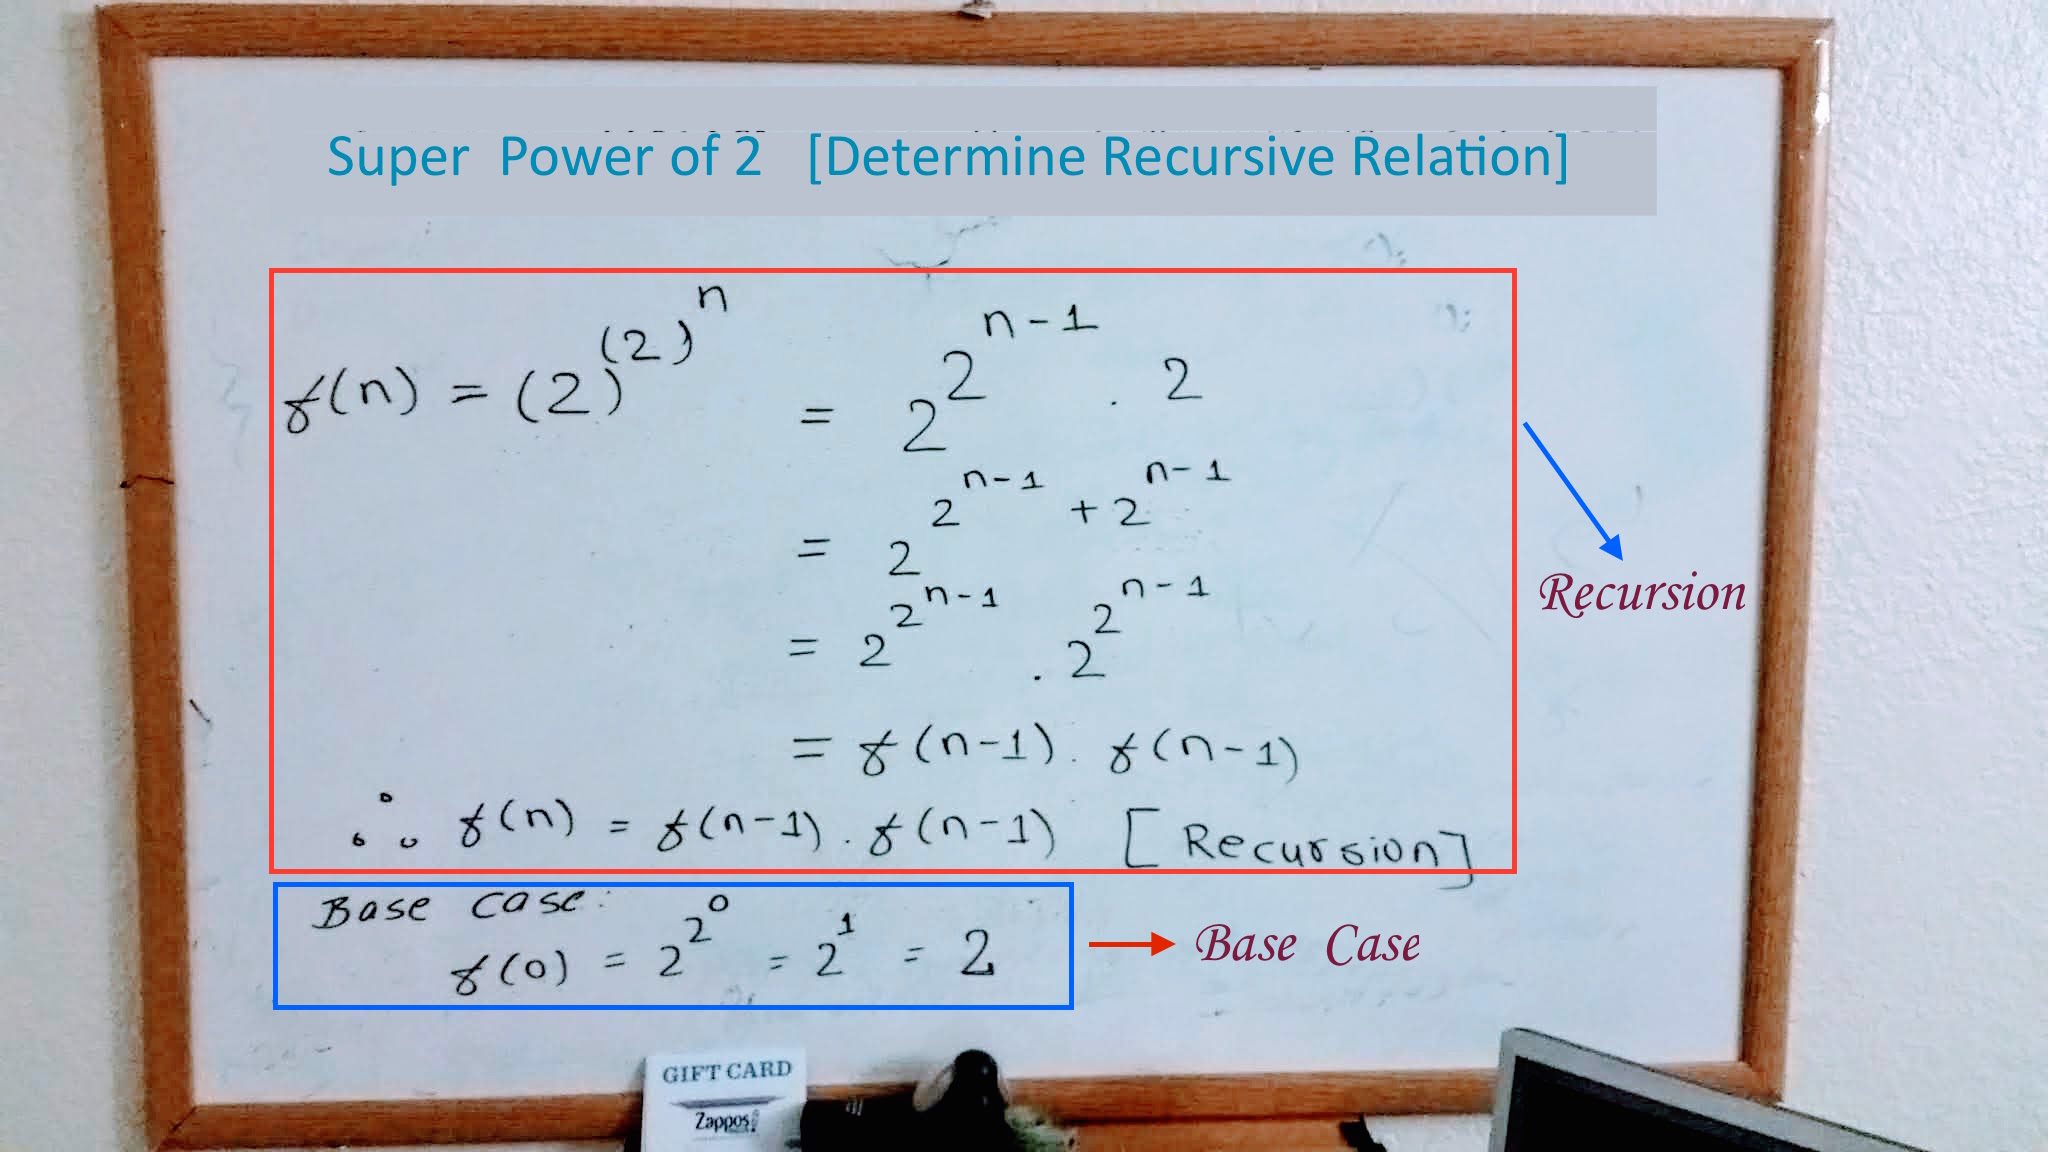 Super Power of 2 [Determine Recursive Relation]
f(n) = (2)^(2)^n = 2^2^n-1 . 2
= 2^2^n-1 + 2^n-1
= 2^2^n-1 . 2^2^n-1
= f(n-1) . f(n-1)
∴ f(n) = f(n-1) . f(n-1) [Recursion]
Recursion
Base case:
f(0) = 2^2^0 = 2^1 = 2
Base Case
GIFT CARD
Zappos